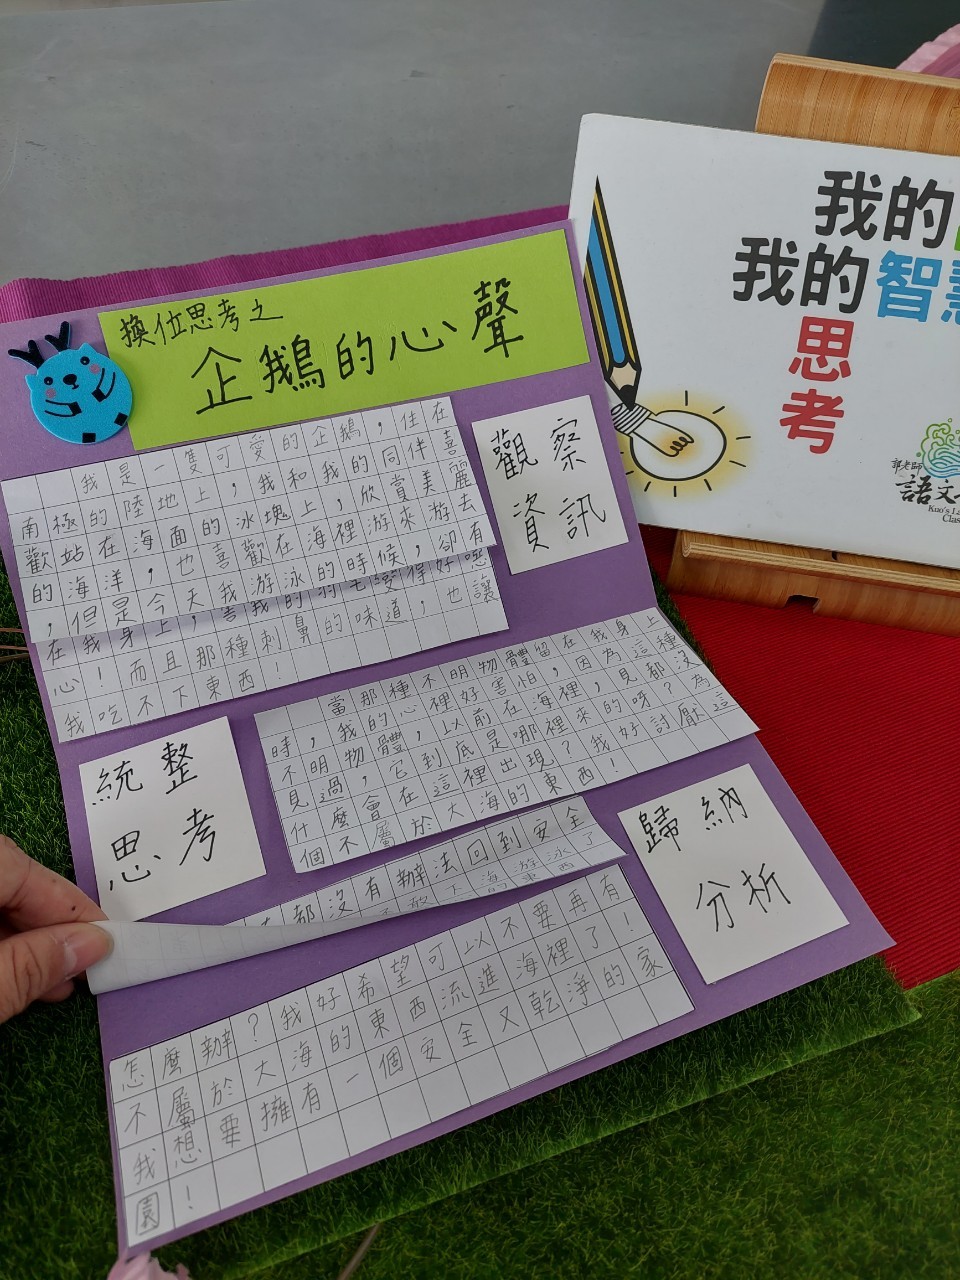 換位思考之
企鵝的心聲
我是一隻可愛的企鵝，住在
南極的陸地上，我和我的同伴喜
歡站在海面的冰塊上，欣賞美麗
的海洋，也喜歡在海裡游來游去
，但是今天我游泳的時候，卻有
在我身上，害我的羽毛變得好噁
心！而且那種刺鼻的味道，也讓
我吃不下東西！
觀察
資訊
當那種不明物體留在我身上
時，我的心裡好害怕，因為這種
不明物體，以前在海裡，見都沒
見過，它到底是哪裡來的呀？為
什麼會在這裡出現？我好討厭這
個不屬於大海的東西！
統整
思考
都沒有辦法回到安全
下海游泳
歸納
分析
怎麼辦？我好希望可以不要再有
不屬於大海的東西流進海裡了！
我想要擁有一個安全又乾淨的家
園！
我的
我的智慧
思
考
郭老師
語文
Kuo's La
Clas